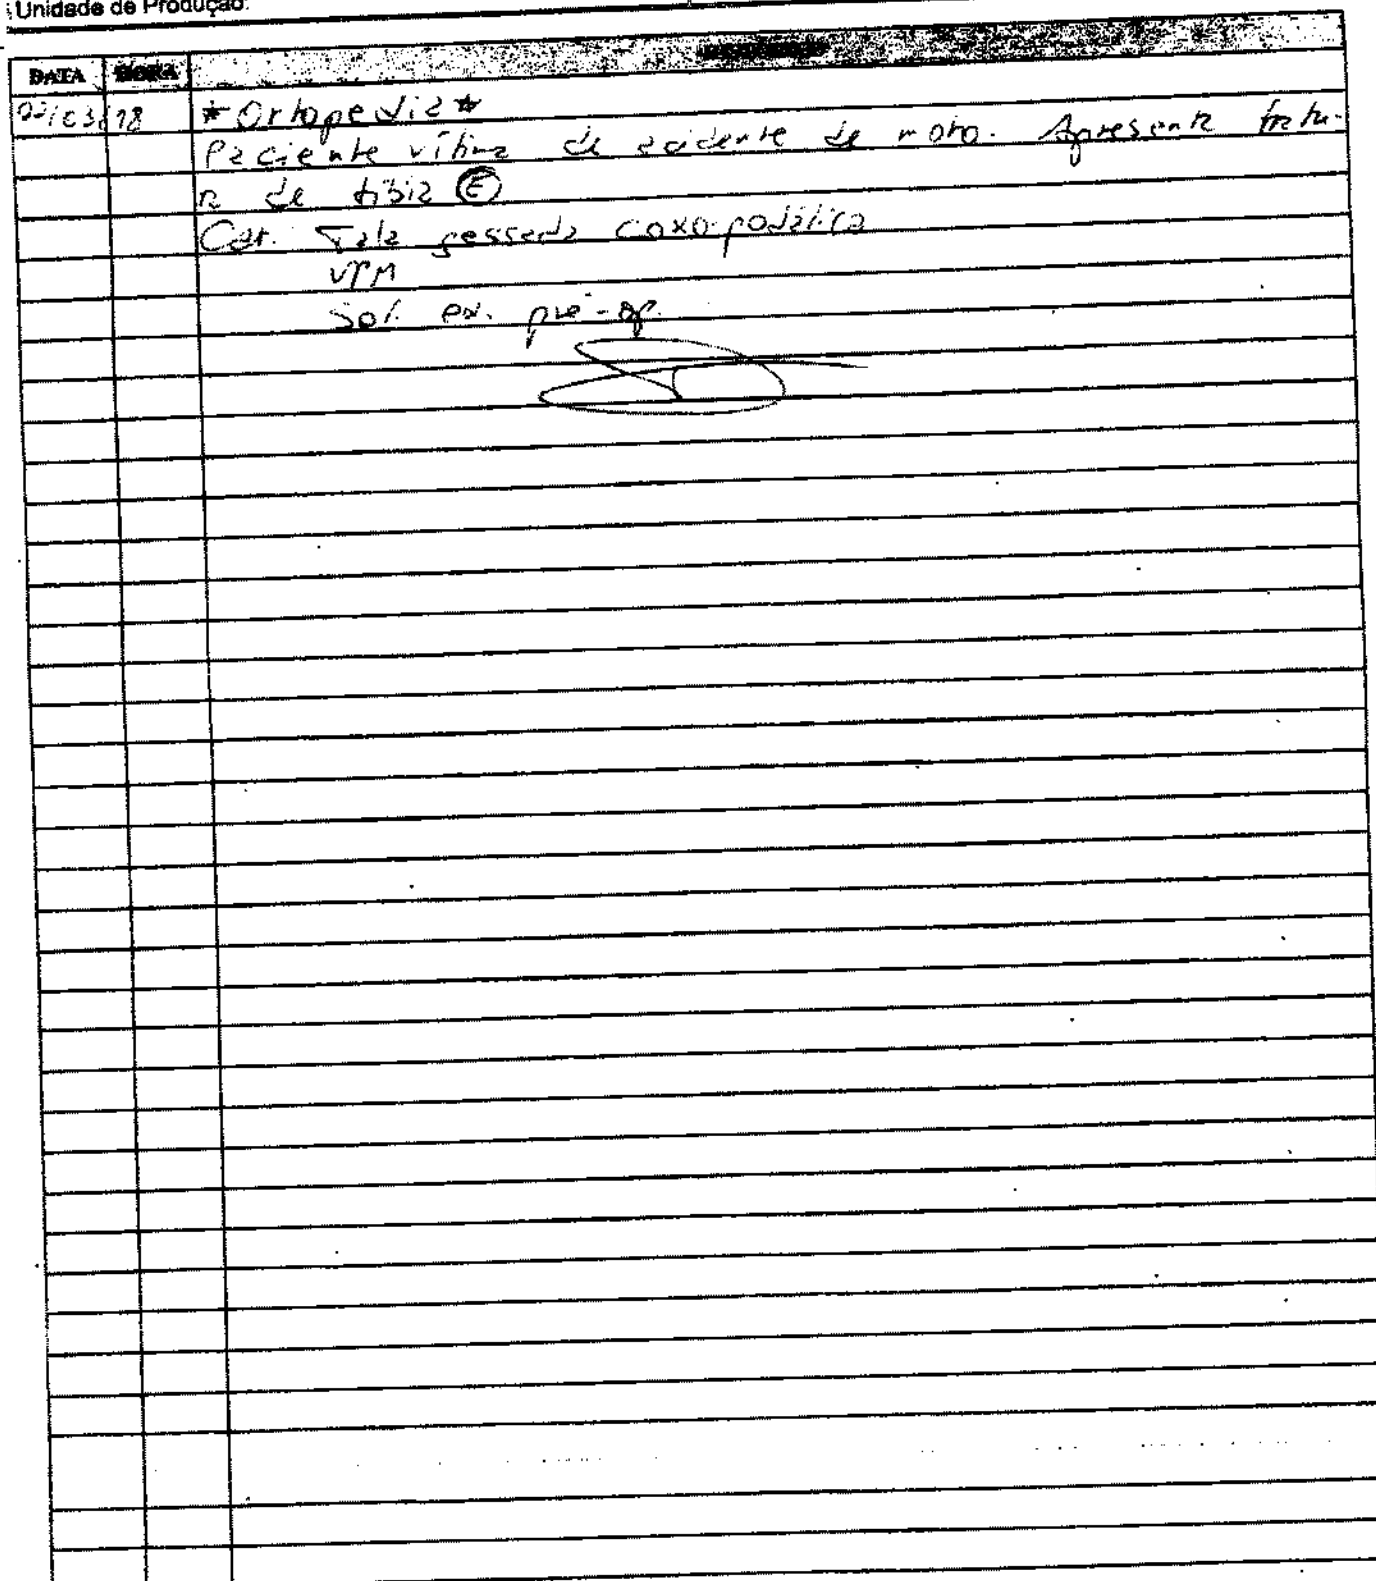 Unidade de Produção:
DATA HORA
/03/18 *Ortopedia*
Paciente vítima de acidente de moto. Apresenta fratu-
ra de tíbia (E)
Tala gessada coxo-podálica
VPM
Sol. ex. pré-op.